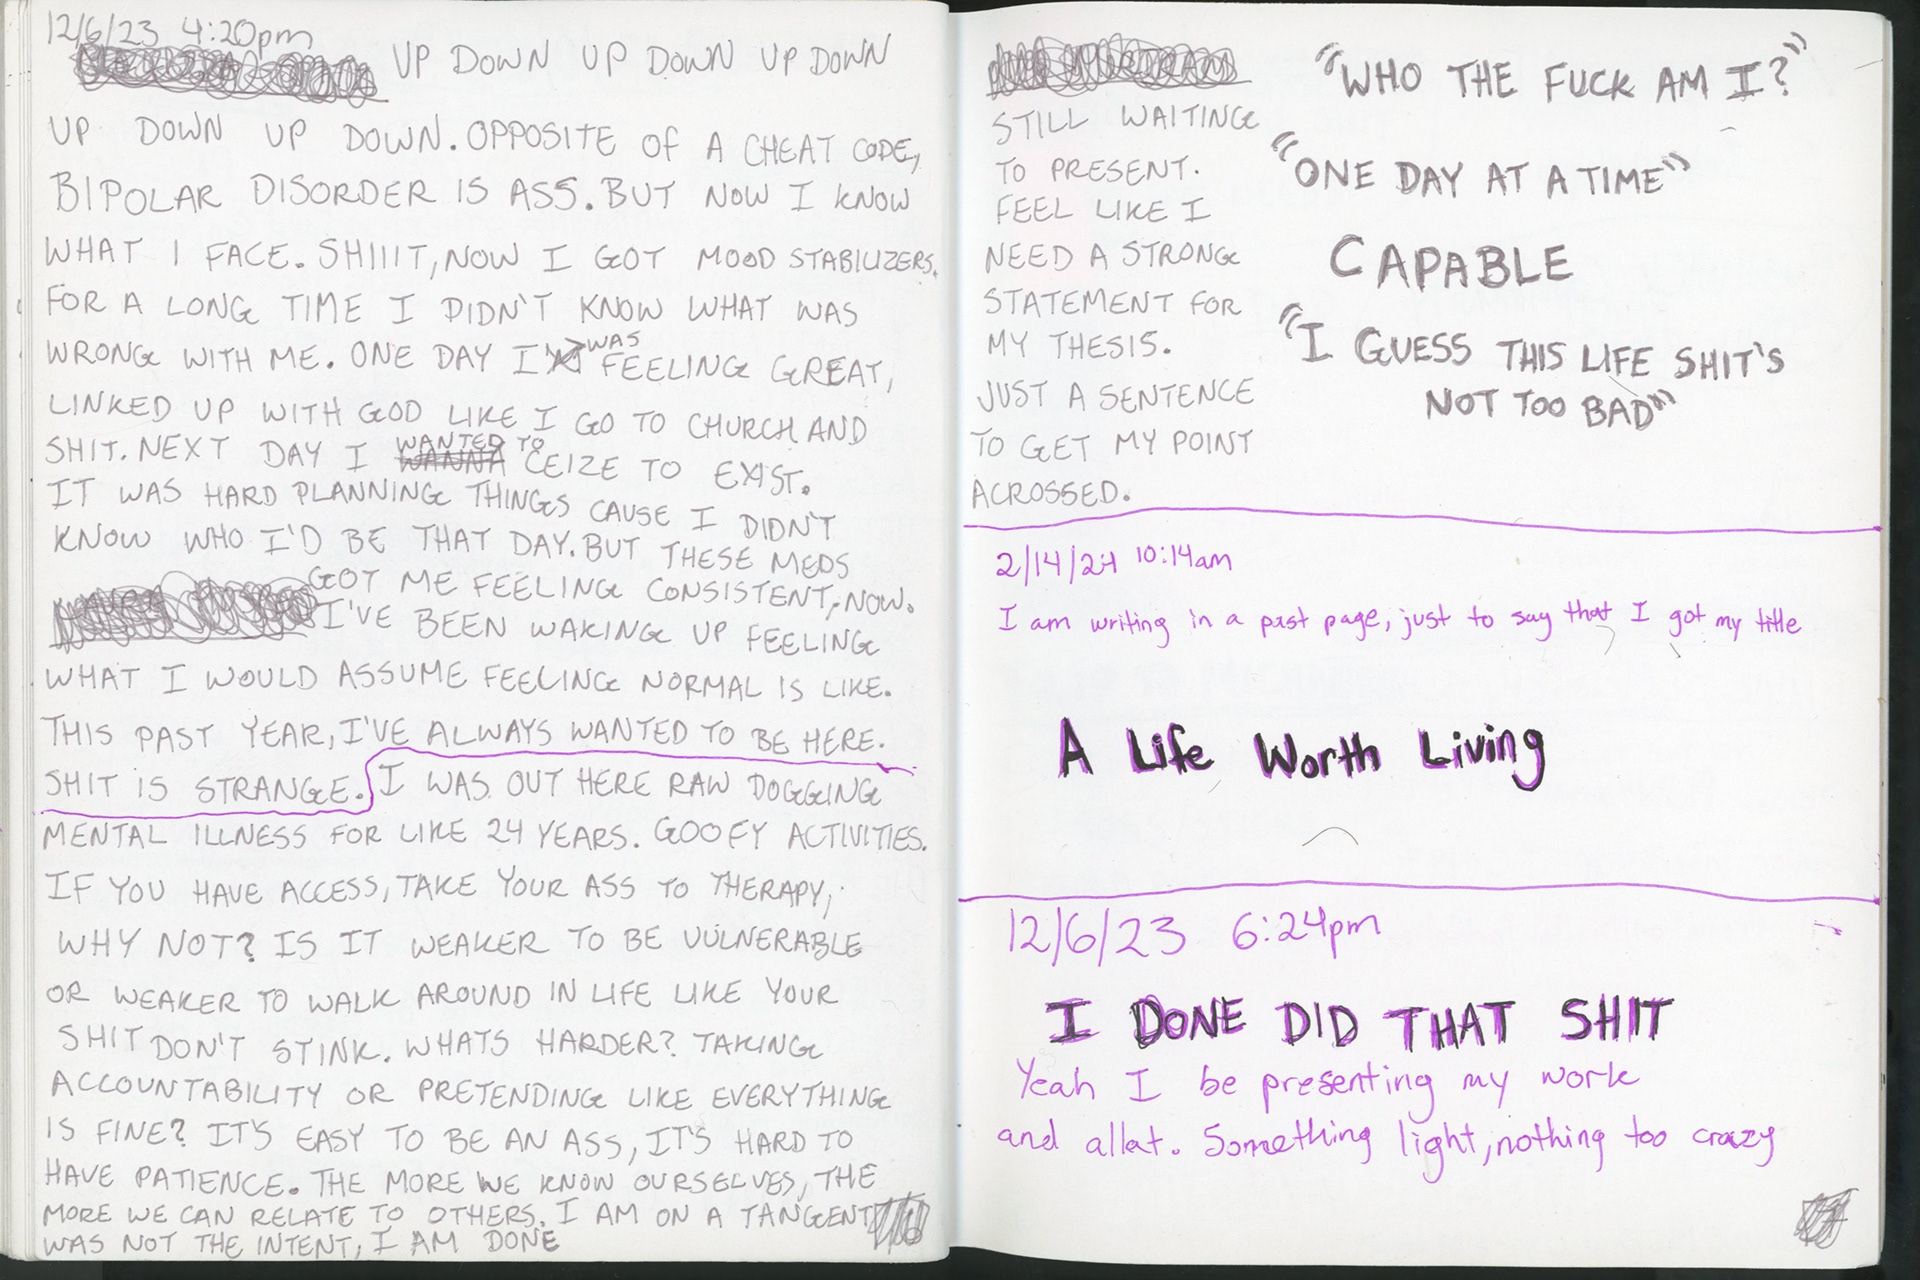 12/6/23 4:20pm
UP DOWN UP DOWN UP DOWN
UP DOWN UP DOWN. OPPOSITE OF A CHEAT CODE,
BIPOLAR DISORDER IS ASS. BUT NOW I KNOW
WHAT I FACE. SHIIIT, NOW I GOT MOOD STABILIZERS.
FOR A LONG TIME I DIDN'T KNOW WHAT WAS
WRONG WITH ME. ONE DAY I WAS FEELING GREAT,
LINKED UP WITH GOD LIKE I GO TO CHURCH AND
SHIT. NEXT DAY I WANTED TO CEIZE TO EXIST.
IT WAS HARD PLANNING THINGS CAUSE I DIDN'T
KNOW WHO I'D BE THAT DAY. BUT THESE MEDS
GOT ME FEELING CONSISTENT, NOW.
I'VE BEEN WAKING UP FEELING
WHAT I WOULD ASSUME FEELING NORMAL IS LIKE.
THIS PAST YEAR, I'VE ALWAYS WANTED TO BE HERE.
SHIT IS STRANGE. I WAS OUT HERE RAW DOGGING
MENTAL ILLNESS FOR LIKE 24 YEARS. GOOFY ACTIVITIES.
IF YOU HAVE ACCESS, TAKE YOUR ASS TO THERAPY,
WHY NOT? IS IT WEAKER TO BE VULNERABLE
OR WEAKER TO WALK AROUND IN LIFE LIKE YOUR
SHIT DON'T STINK. WHATS HARDER? TAKING
ACCOUNTABILITY OR PRETENDING LIKE EVERYTHING
IS FINE? IT'S EASY TO BE AN ASS, IT'S HARD TO
HAVE PATIENCE. THE MORE WE KNOW OURSELVES, THE
MORE WE CAN RELATE TO OTHERS. I AM ON A TANGENT
WAS NOT THE INTENT, I AM DONE
STILL WAITING
TO PRESENT.
FEEL LIKE I
NEED A STRONG
STATEMENT FOR
MY THESIS.
JUST A SENTENCE
TO GET MY POINT
ACROSSED.
"WHO THE FUCK AM I?"
"ONE DAY AT A TIME"
CAPABLE
"I GUESS THIS LIFE SHIT'S
NOT TOO BAD"
2/14/24 10:14am
I am writing in a past page, just to say that I got my title
A Life Worth Living
12/6/23 6:24pm
I DONE DID THAT SHIT
Yeah I be presenting my work
and allat. Something light, nothing too crazy